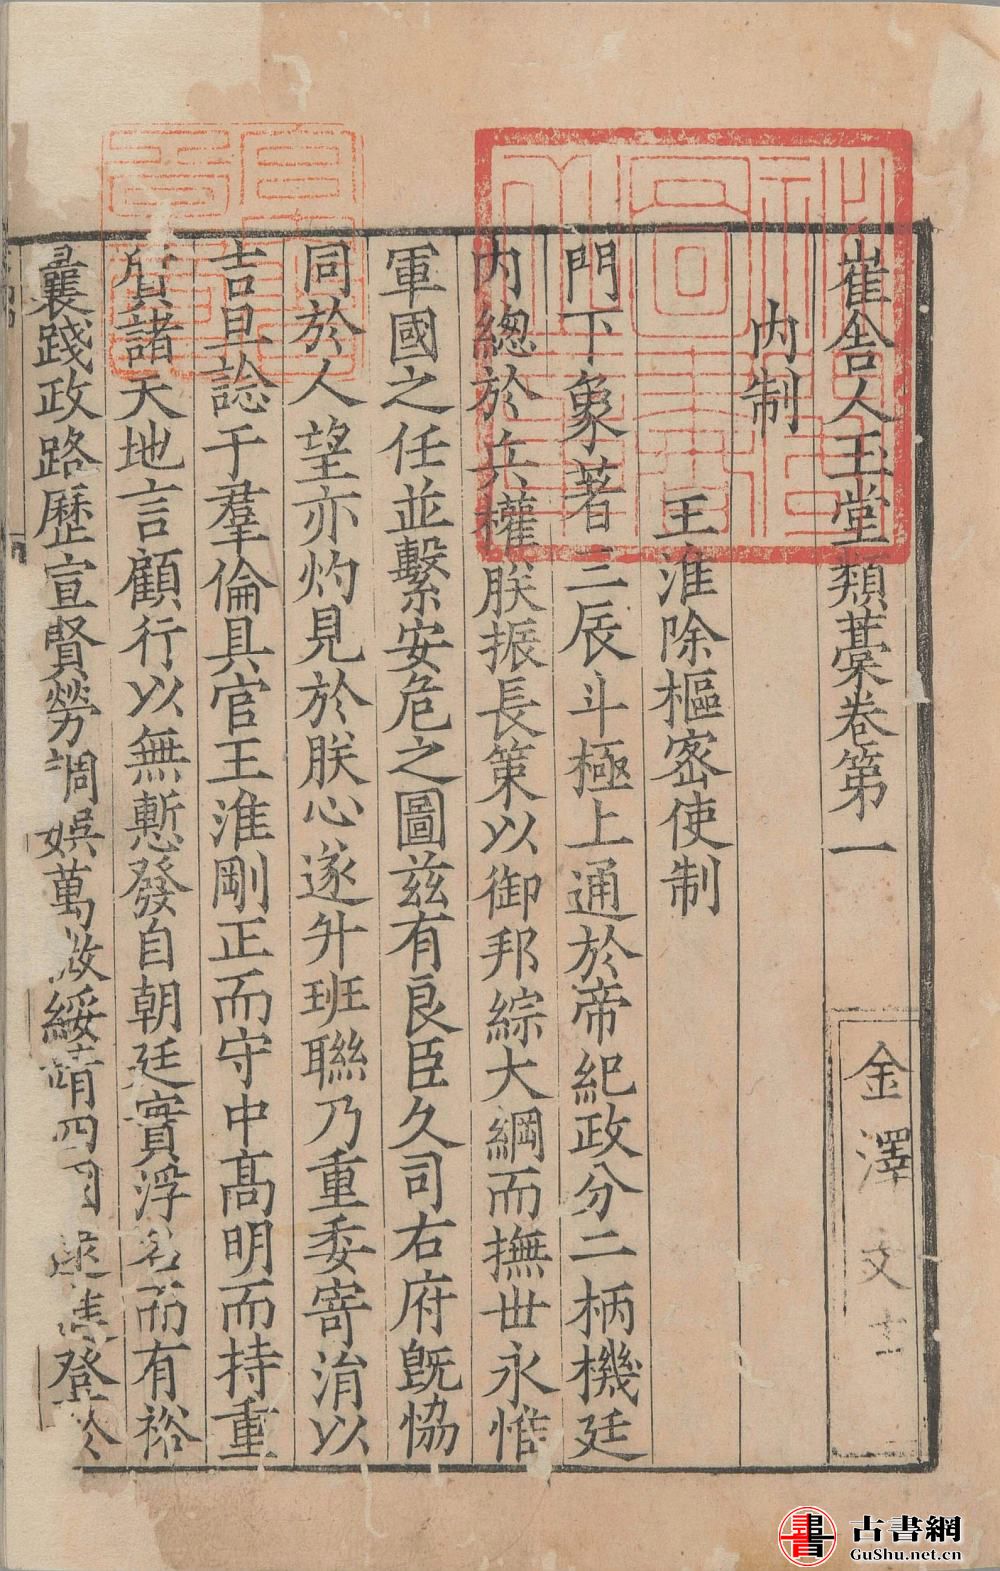 崔舍人玉堂類藁卷第一
金澤文
内制
王淮除樞宻使制
門下象著三辰斗極上通於帝紀政分二柄機廷
内緫於兵權朕振長策以御邦綜大綱而撫丗永惟
軍國之任並繫安危之圖兹有良臣久司右府旣恊
同於人望亦灼見於朕心遂升班聯乃重委寄涓以
吉旦諗于羣倫具官王淮剛正而守中髙明而持重
質諸天地言顧行以無慙發自朝廷實浮名而有裕
曩踐政路歴宣賢勞調娛萬微綏靖四國遂登於
古書網
GuShu.net.cn